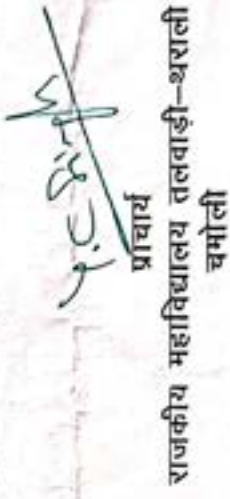 प्राचार्य
राजकीय महाविद्यालय तलवाड़ी–थराली
चमोली